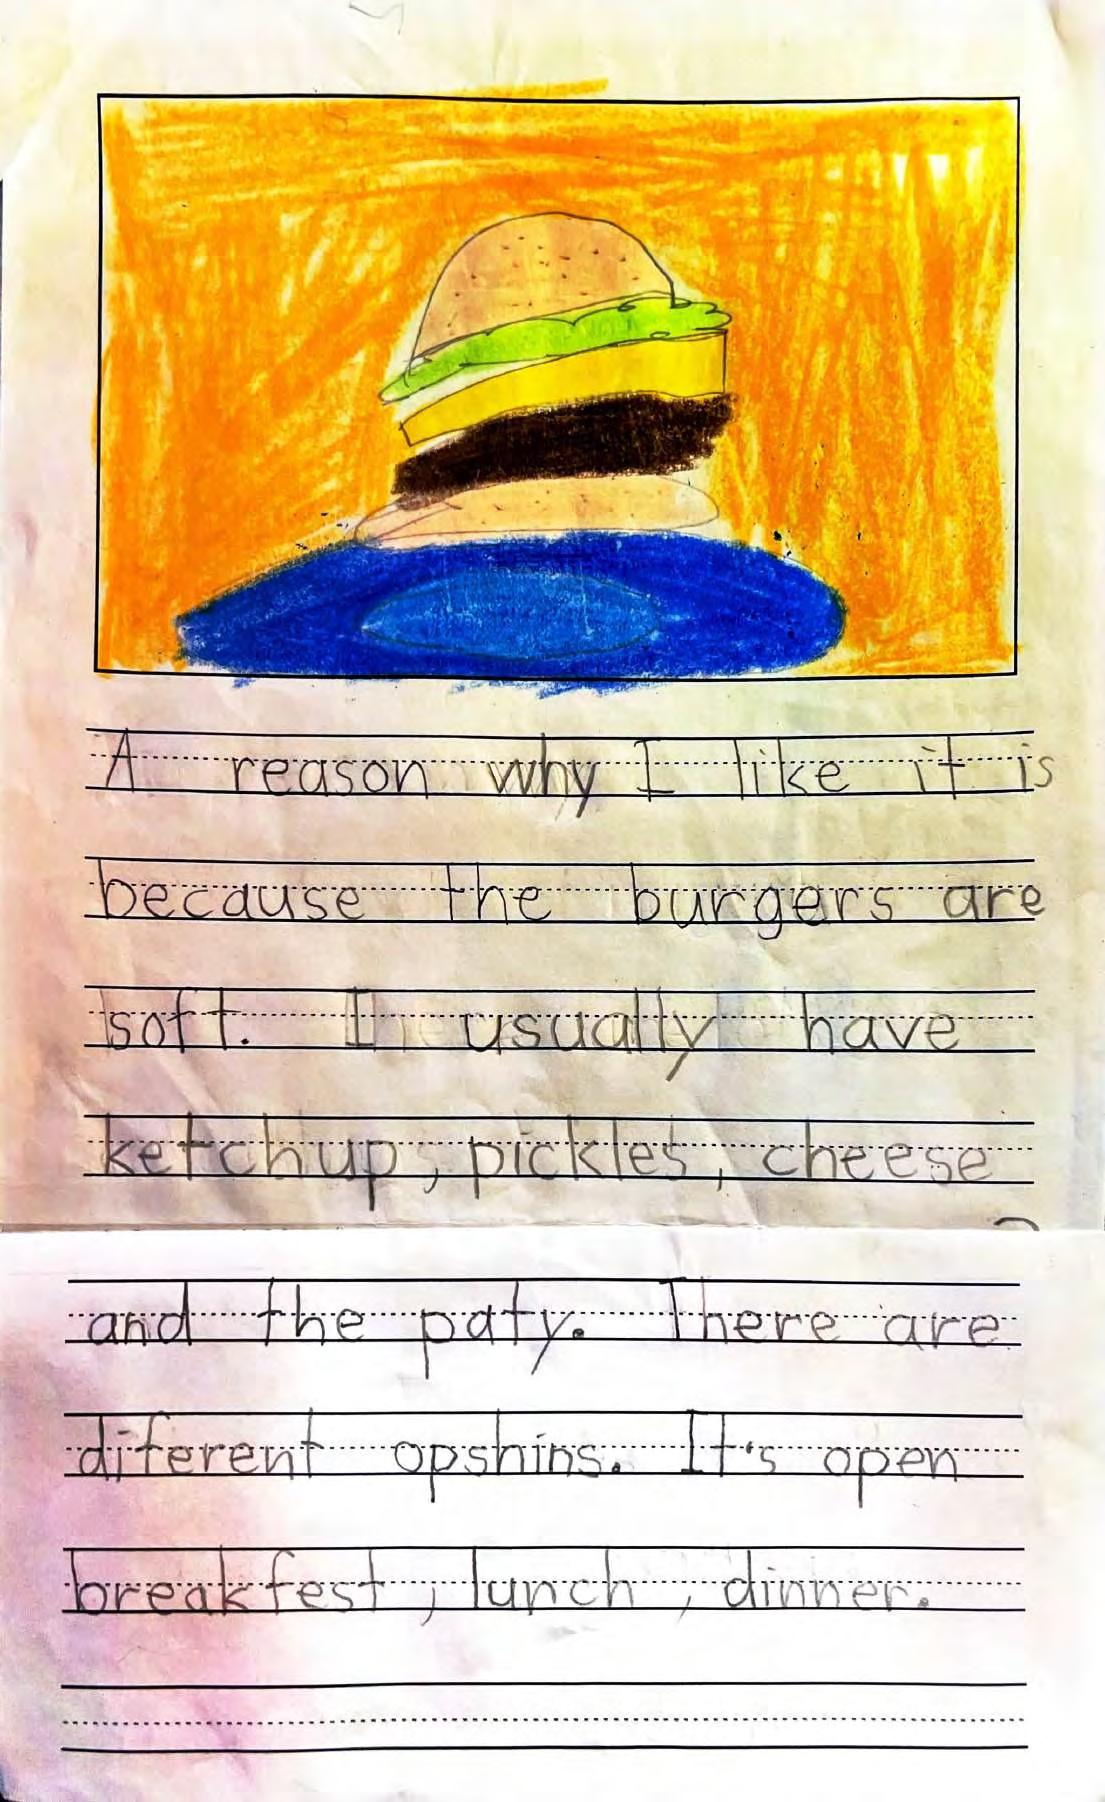 A reason why I like it is
because the burgers are
soft. I usually have
ketchup, pickles, cheese
and the paty. There are
diferent opshins. It's open
breakfest, lunch, dinner.